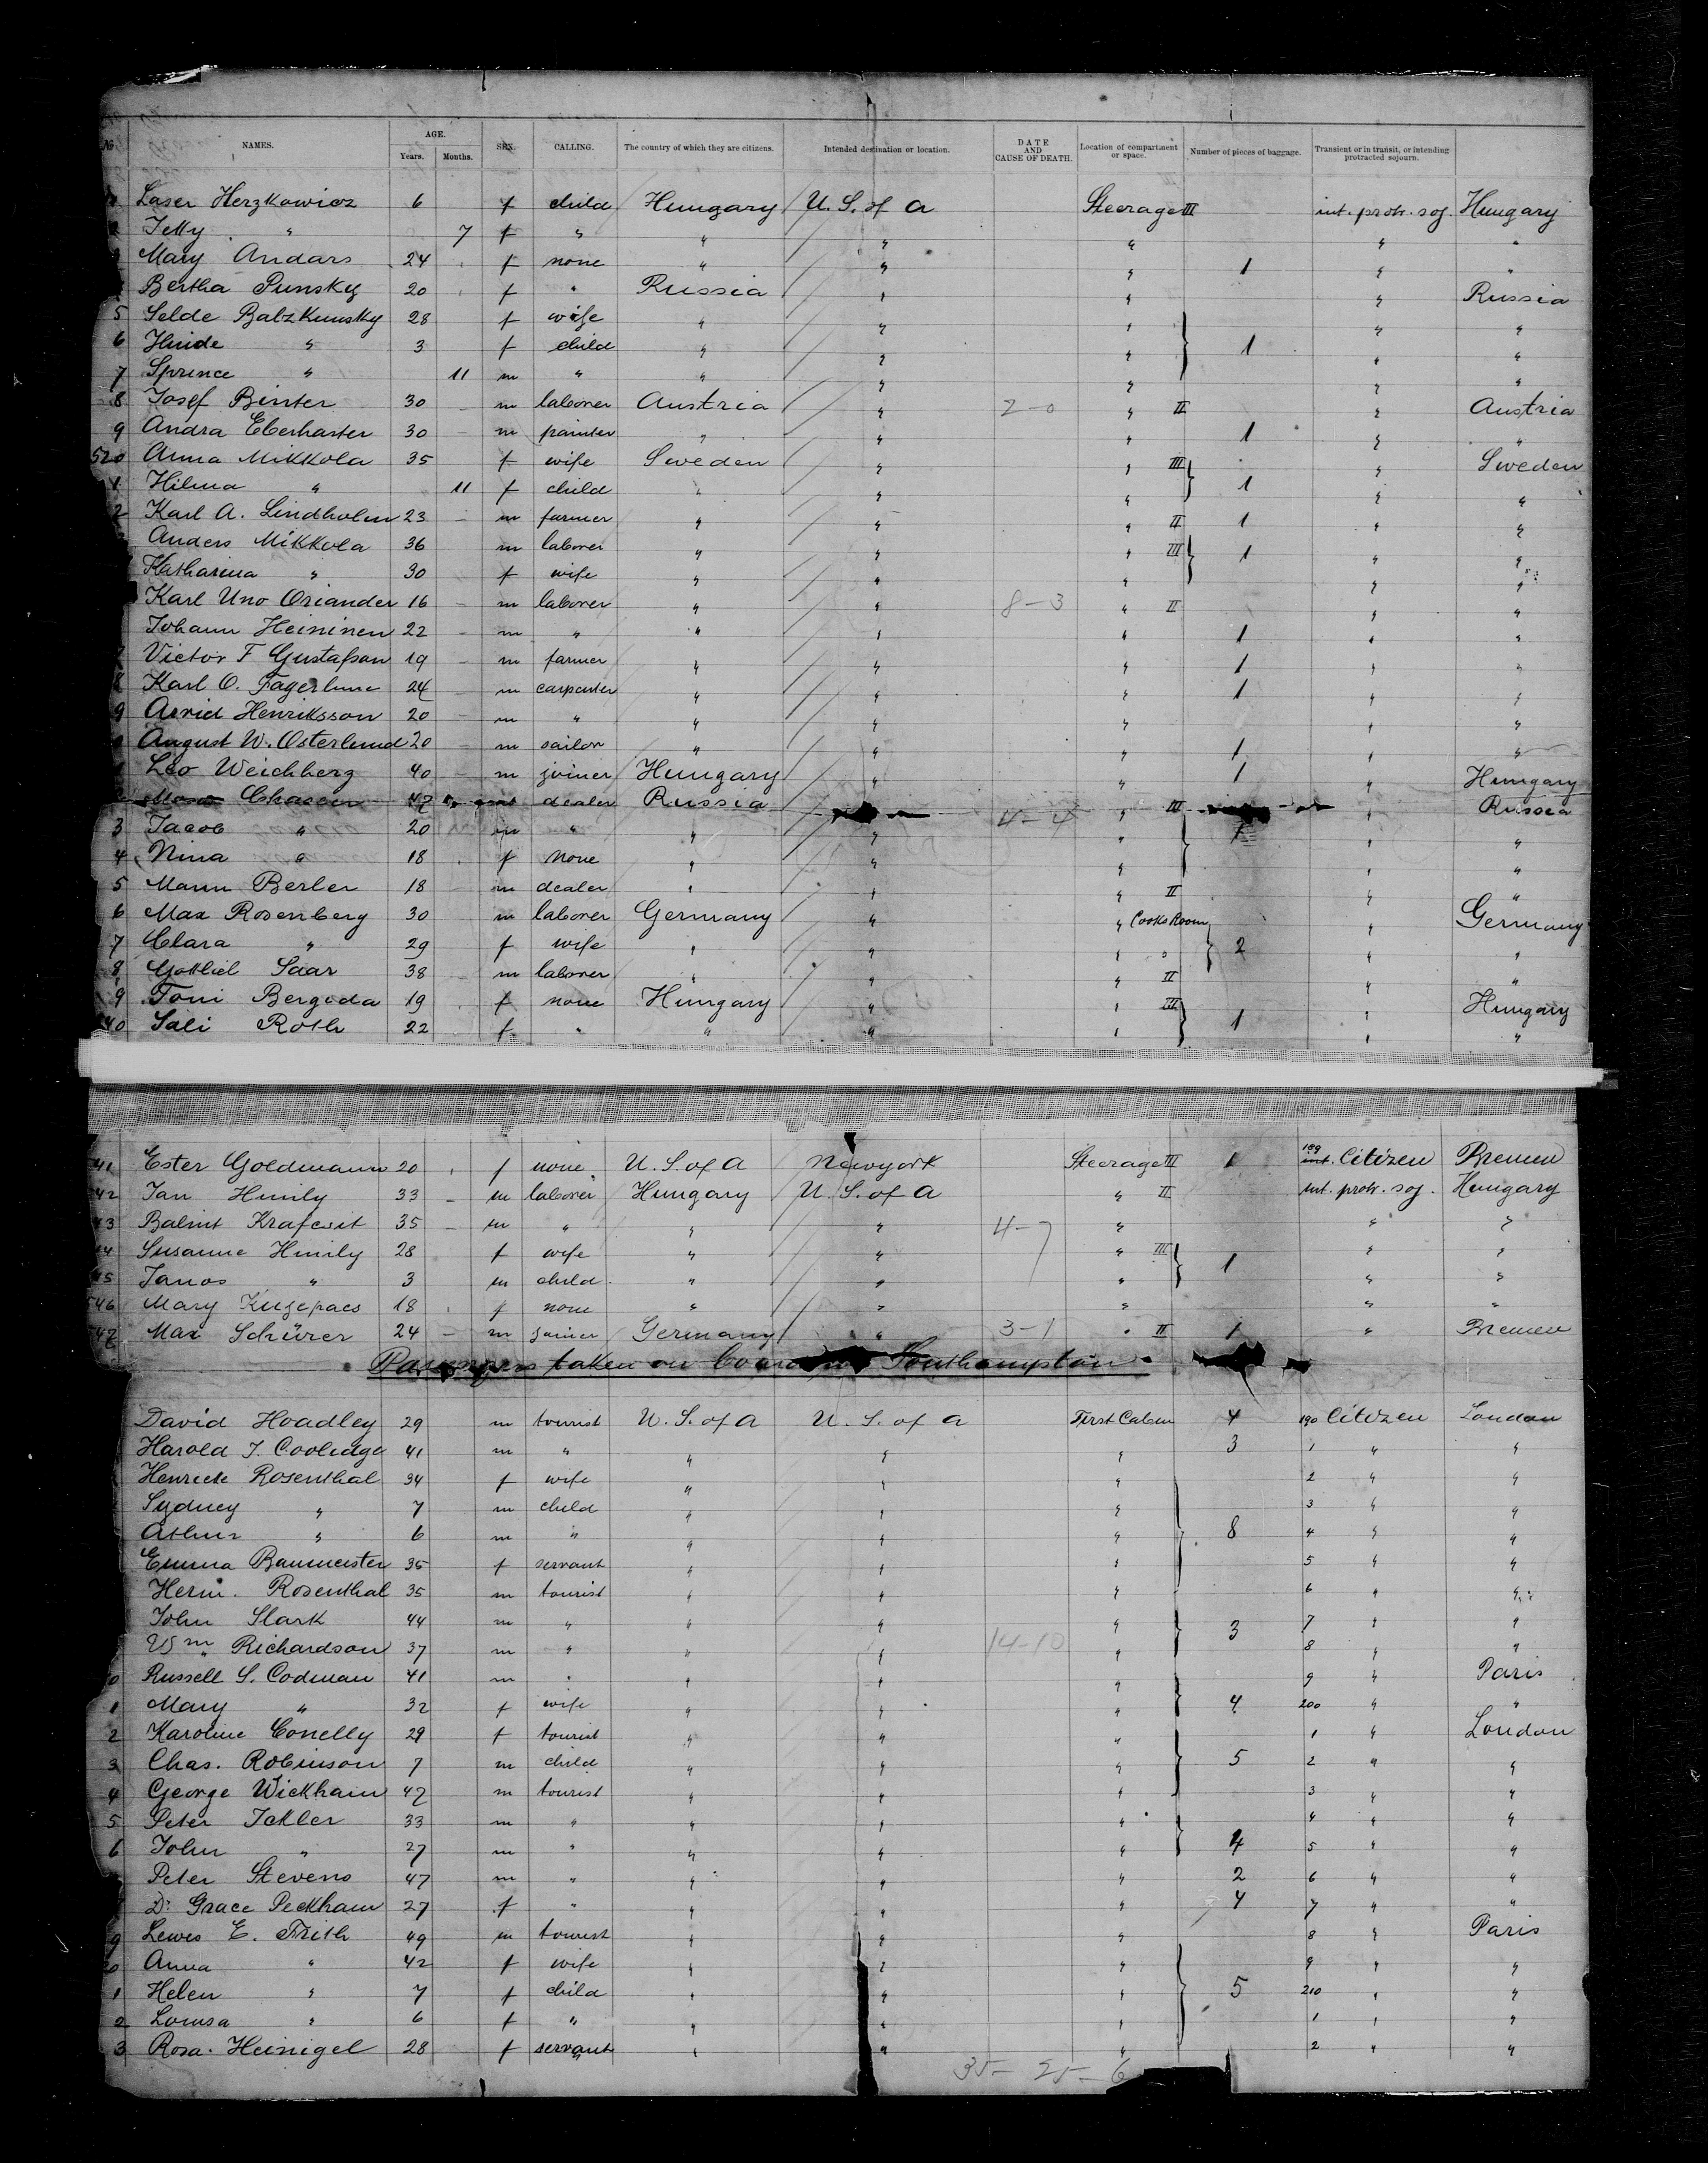 No. NAMES. AGE. Years. Months. SEX. CALLING. The country of which they are citizens. Intended destination or location. DATE AND CAUSE OF DEATH. Location of compartment or space. Number of pieces of baggage. Transient or in transit, or intending protracted sojourn.
Laser Herzkowicz 6 f child Hungary U. S. of A Steerage III int. protr. soj. Hungary
Jetty " 7 f " " " " " "
Mary Andars 24 f none " " " 1 " "
Bertha Punsky 20 f " Russia " " " Russia
5 Selde Balzkunsky 28 f wife " " " " "
6 Hinde " 3 f child " " " 1 " "
7 Sprince " 11 m " " " " " "
8 Josef Binter 30 m laborer Austria " 2-0 " II " Austria
9 Andra Eberharter 30 m painter " " " 1 " "
520 Anna Mikkola 35 f wife Sweden " " III " Sweden
1 Hilma " 11 f child " " " 1 " "
2 Karl A. Lindholm 23 m farmer " " " II 1 " "
Anders Mikkola 36 m laborer " " " III 1 " "
Katharina " 30 f wife " " " " "
Karl Uno Oriander 16 m laborer " " 8-3 " II " "
Johann Heininen 22 m " " " " 1 " "
Victor F Gustafson 19 m farmer " " " 1 " "
8 Karl O. Fagerlune 24 m carpenter " " " 1 " "
9 Arvid Henriksson 20 m " " " " " "
August W. Osterlund 20 m sailor " " " 1 " "
Leo Weichberg 40 m joiner Hungary " " 1 " Hungary
Chasen 47 dealer Russia 4-4 " III " Russia
3 Jacob " 20 m " " " " 1 " "
4 Nina " 18 f none " " " " "
5 Mann Berler 18 m dealer " " " II " "
6 Max Rosenberg 30 m laborer Germany " " Cooks Room " Germany
7 Clara " 29 f wife " " " " 2 " "
8 Gottlieb Saar 38 m laborer " " " II " "
9 Toni Bergida 19 f none Hungary " " III " Hungary
540 Sali Roth 22 f " " " " 1 " "
41 Ester Goldmann 20 f none U. S. of A Newyork Steerage III 1 189 int. Citizen Bremen
42 Jan Hmily 33 m laborer Hungary U. S. of A " II int. protr. soj. Hungary
43 Balint Krafcsit 35 m " " " 4-7 " " "
44 Susanne Hmily 28 f wife " " " III 1 " "
45 Janos " 3 m child " " " " "
546 Mary Kuzepacs 18 f none " " " " "
547 Max Schürer 24 m joiner Germany " 3-1 " II 1 " Bremen
Passengers taken on board in Southampton.
David Hoadley 29 m tourist U. S. of A U. S. of A First Cabin 4 190 Citizen London
Harold J. Coolidge 41 m " " " " 3 1 " "
Henriette Rosenthal 34 f wife " " " 2 " "
Sydney " 7 m child " " " 3 " "
Arthur " 6 m " " " " 8 4 " "
Emma Baumeister 35 f servant " " " 5 " "
Herm. Rosenthal 35 m tourist " " " 6 " "
John Slark 44 m " " " " 3 7 " "
Wm Richardson 37 m " " " 14-10 " 8 " "
0 Russell S. Codman 41 m " " " " 9 " Paris
1 Mary " 32 f wife " " " 4 200 " "
2 Karoline Conelly 29 f tourist " " " 1 " London
3 Chas. Robinson 7 m child " " " 5 2 " "
4 George Wickham 47 m tourist " " " 3 " "
5 Peter Ickler 33 m " " " " 4 " "
6 John " 27 m " " " " 4 5 " "
Peter Stevens 47 m " " " " 2 6 " "
Dr. Grace Peckham 27 f " " " " 4 7 " "
9 Lewis E. Frith 49 m tourist " " " 8 " Paris
0 Anna " 42 f wife " " " 9 " "
1 Helen " 7 f child " " " 5 210 " "
2 Louisa " 6 f " " " " 1 " "
3 Rosa Heinigel 28 f servant " " " 2 " "
35- 25- 6